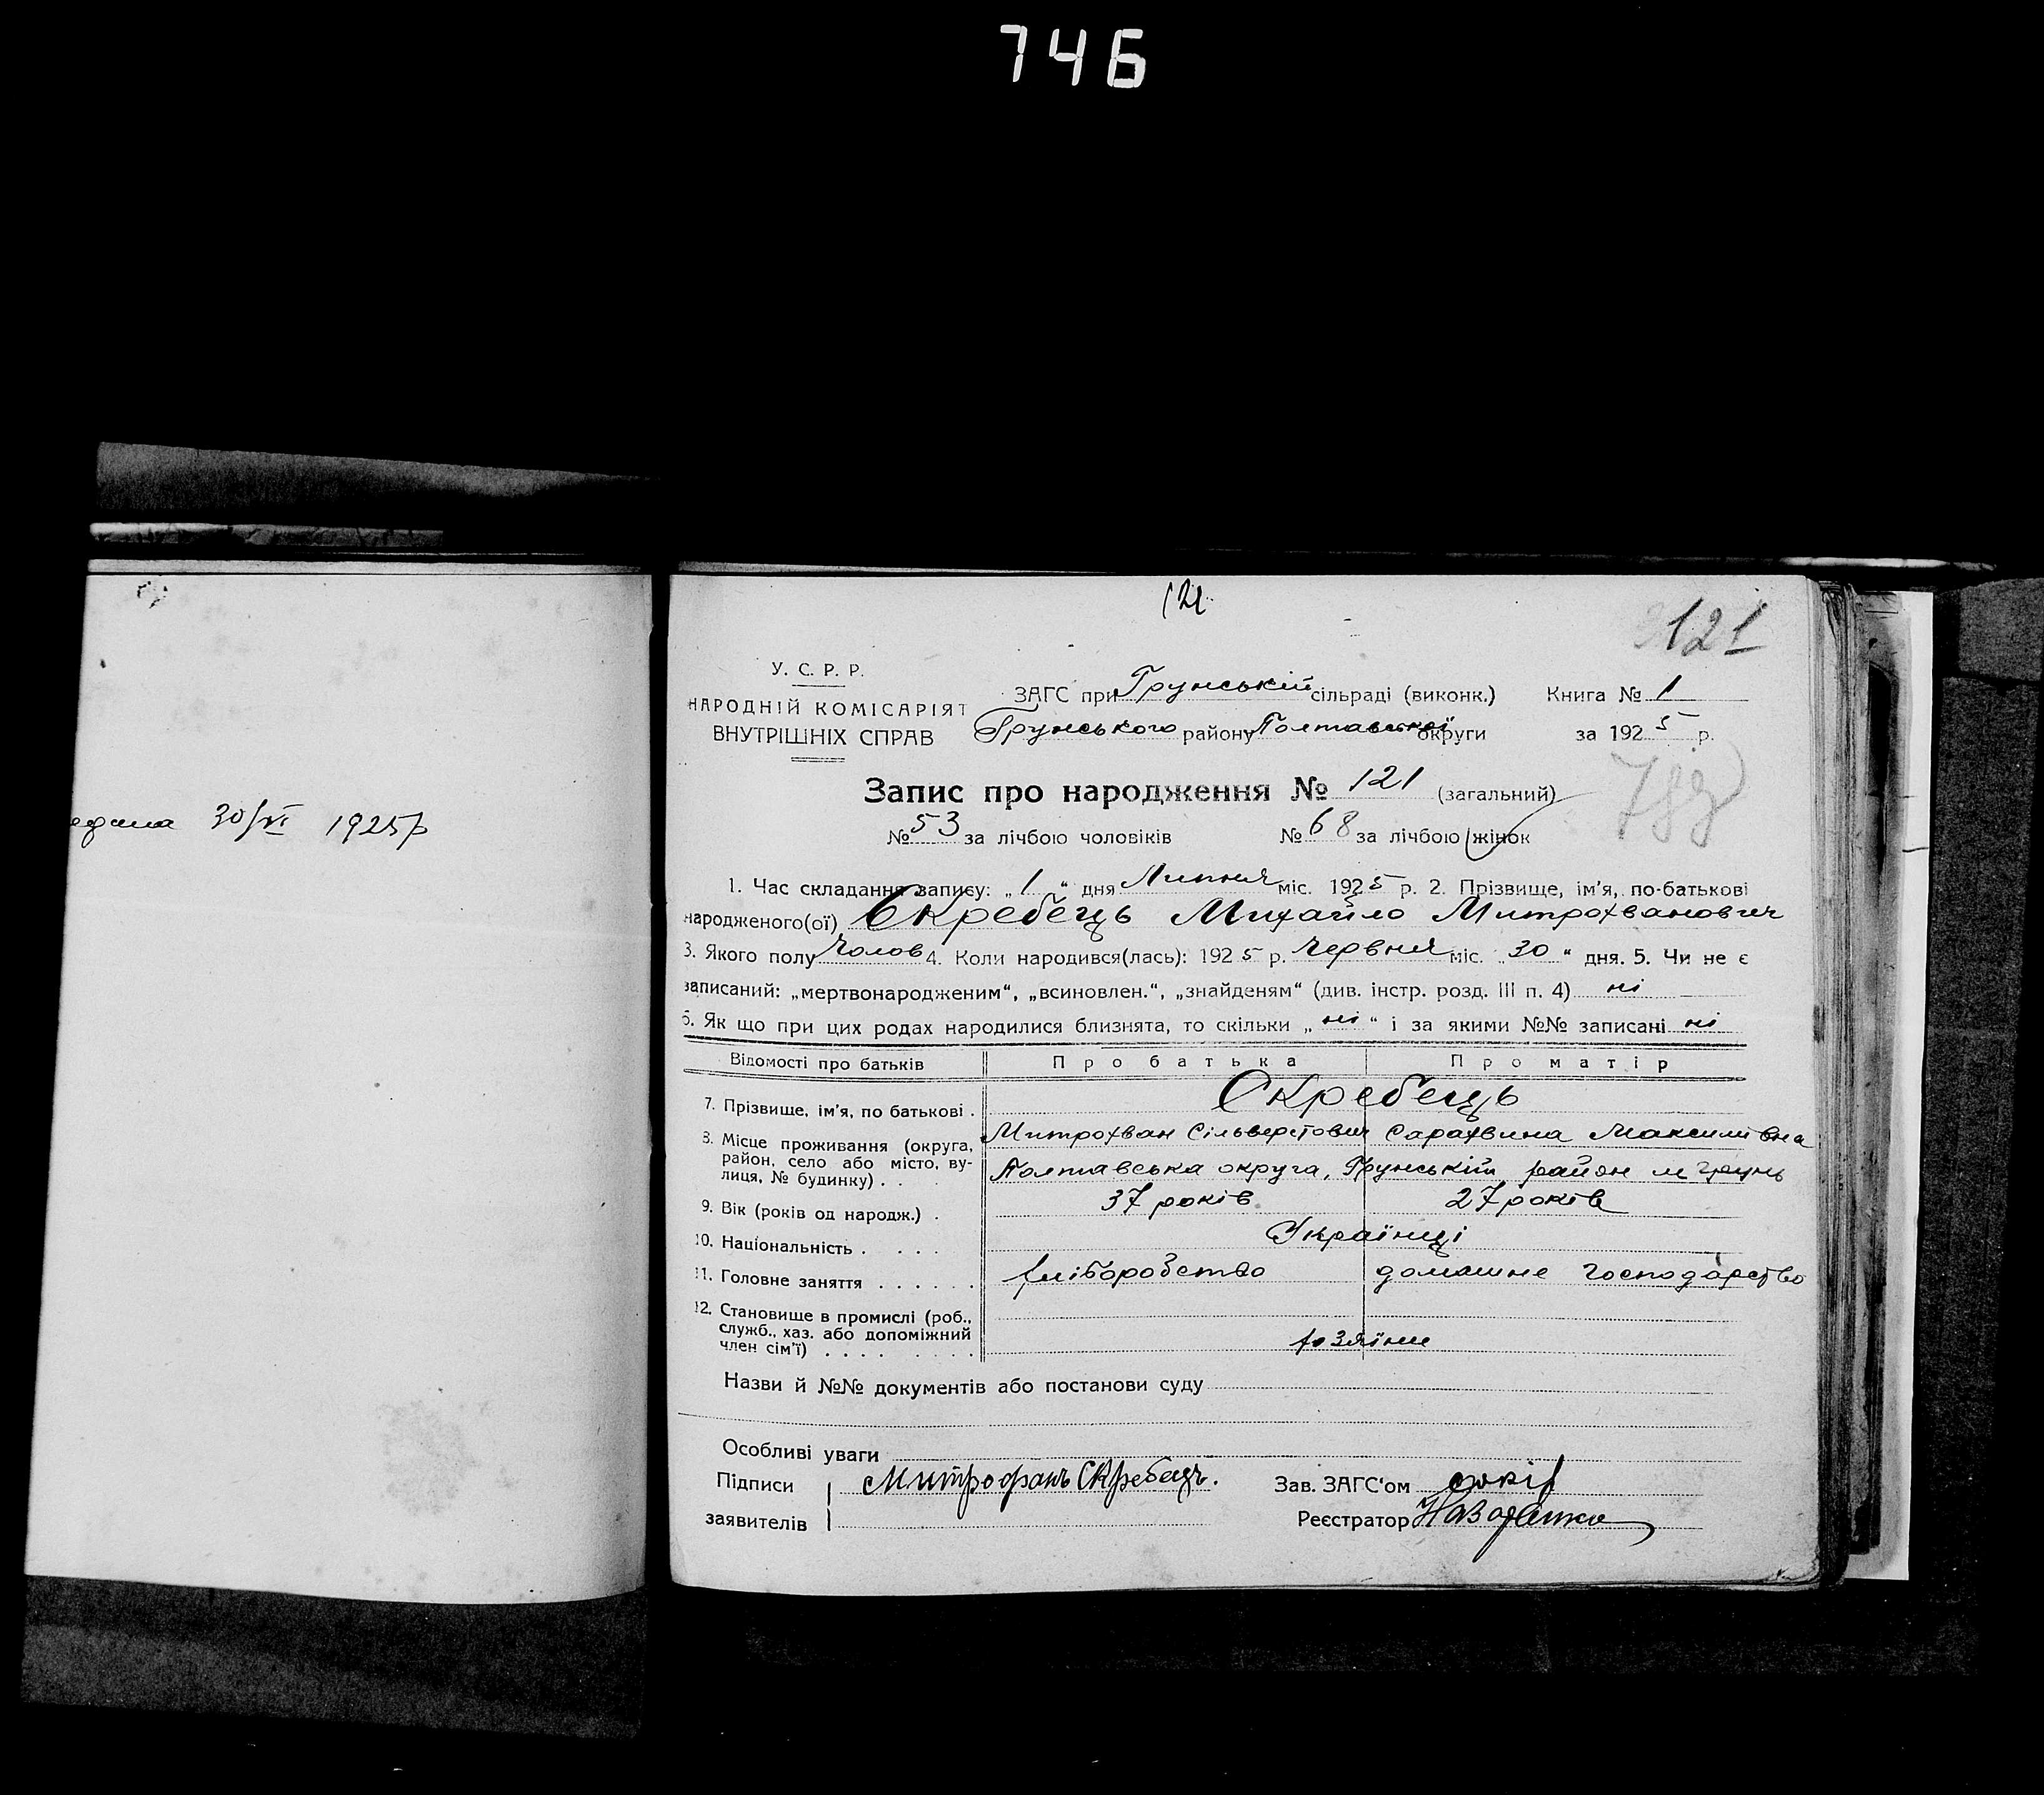 746
30/VI 1925р
121
121
У. С. Р. Р.
НАРОДНІЙ КОМІСАРІЯТ
ВНУТРІШНІХ СПРАВ
ЗАГС при Грунській сільраді (виконк.) Книга № 1
Грунського району Полтавської округи за 1925 р.
Запис про народження № 121 (загальний)
№ 53 за лічбою чоловіків № 68 за лічбою жінок
1. Час складання запису: „1“ дня Липня міс. 1925 р. 2. Прізвище, ім’я, по-батькові
народженого(ої) Скребець Михайло Митрохванович
3. Якого полу Чолов 4. Коли народився(лась): 1925 р. Червня міс. „30“ дня. 5. Чи не є
записаний: „мертвонародженим“, „всиновлен.“, „знайденям“ (див. інстр. розд. III п. 4) ні
6. Як що при цих родах народилися близнята, то скільки „ні“ і за якими №№ записані ні
Відомості про батьків Про батька Про матір
7. Прізвище, ім’я, по батькові . Скребець
Митрохван Сільверстович Сарахвина Максимівна
8. Місце проживання (округа, район, село або місто, ву-
лиця, № будинку) . . Полтавська округа, Грунській район м Грунь
9. Вік (років од народж.) . 37 років 27 років
10. Національність . . . . Українці
11. Головне заняття . . . . . . хліборобство домашне господарство
12. Становище в промислі (роб.,
служб., хаз. або допоміжний
член сім’ї) . . . . . . . . хозяїни
Назви й №№ документів або постанови суду
Особливі уваги
Підписи Митрофанъ Скребець. Зав. ЗАГС‘ом
заявителів Реєстратор